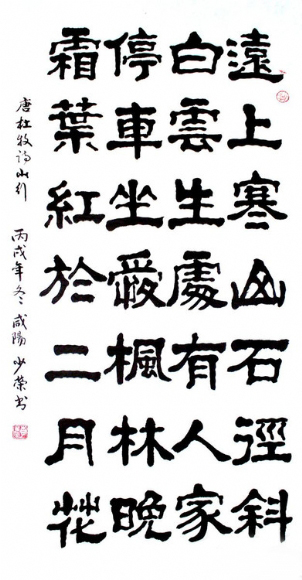 遠上寒山石徑斜
白雲生處有人家
停車坐愛楓林晚
霜葉紅於二月花
唐杜牧詩山行
丙戌年冬咸陽少榮书